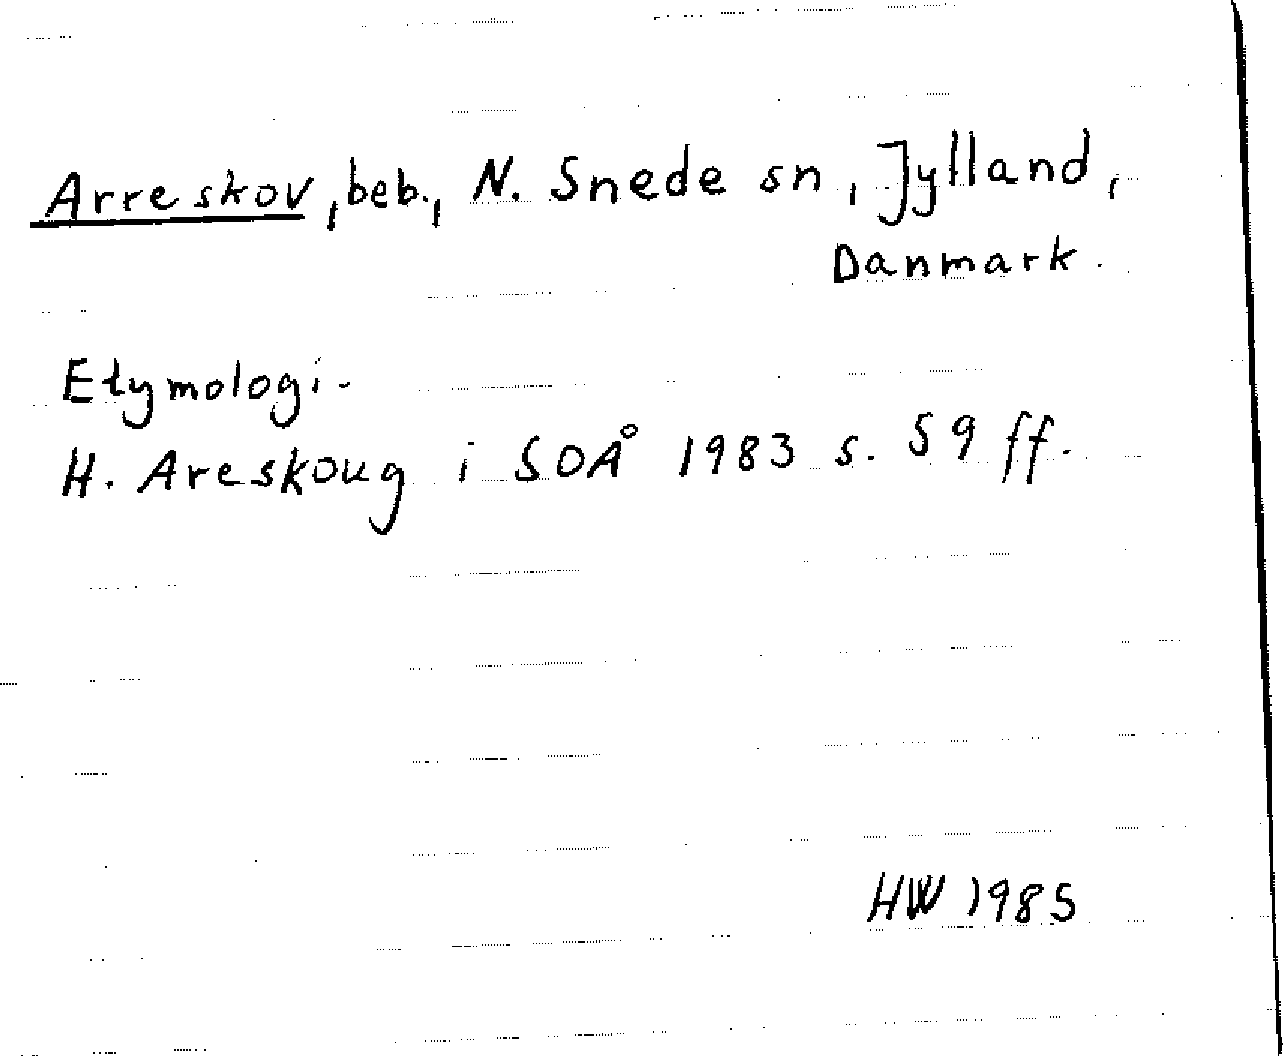 Arreskov, beb., N. Snede sn, Jylland,
Danmark.
Etymologi.
H. Areskoug i SOÅ 1983 s. 59 ff.
HW 1985